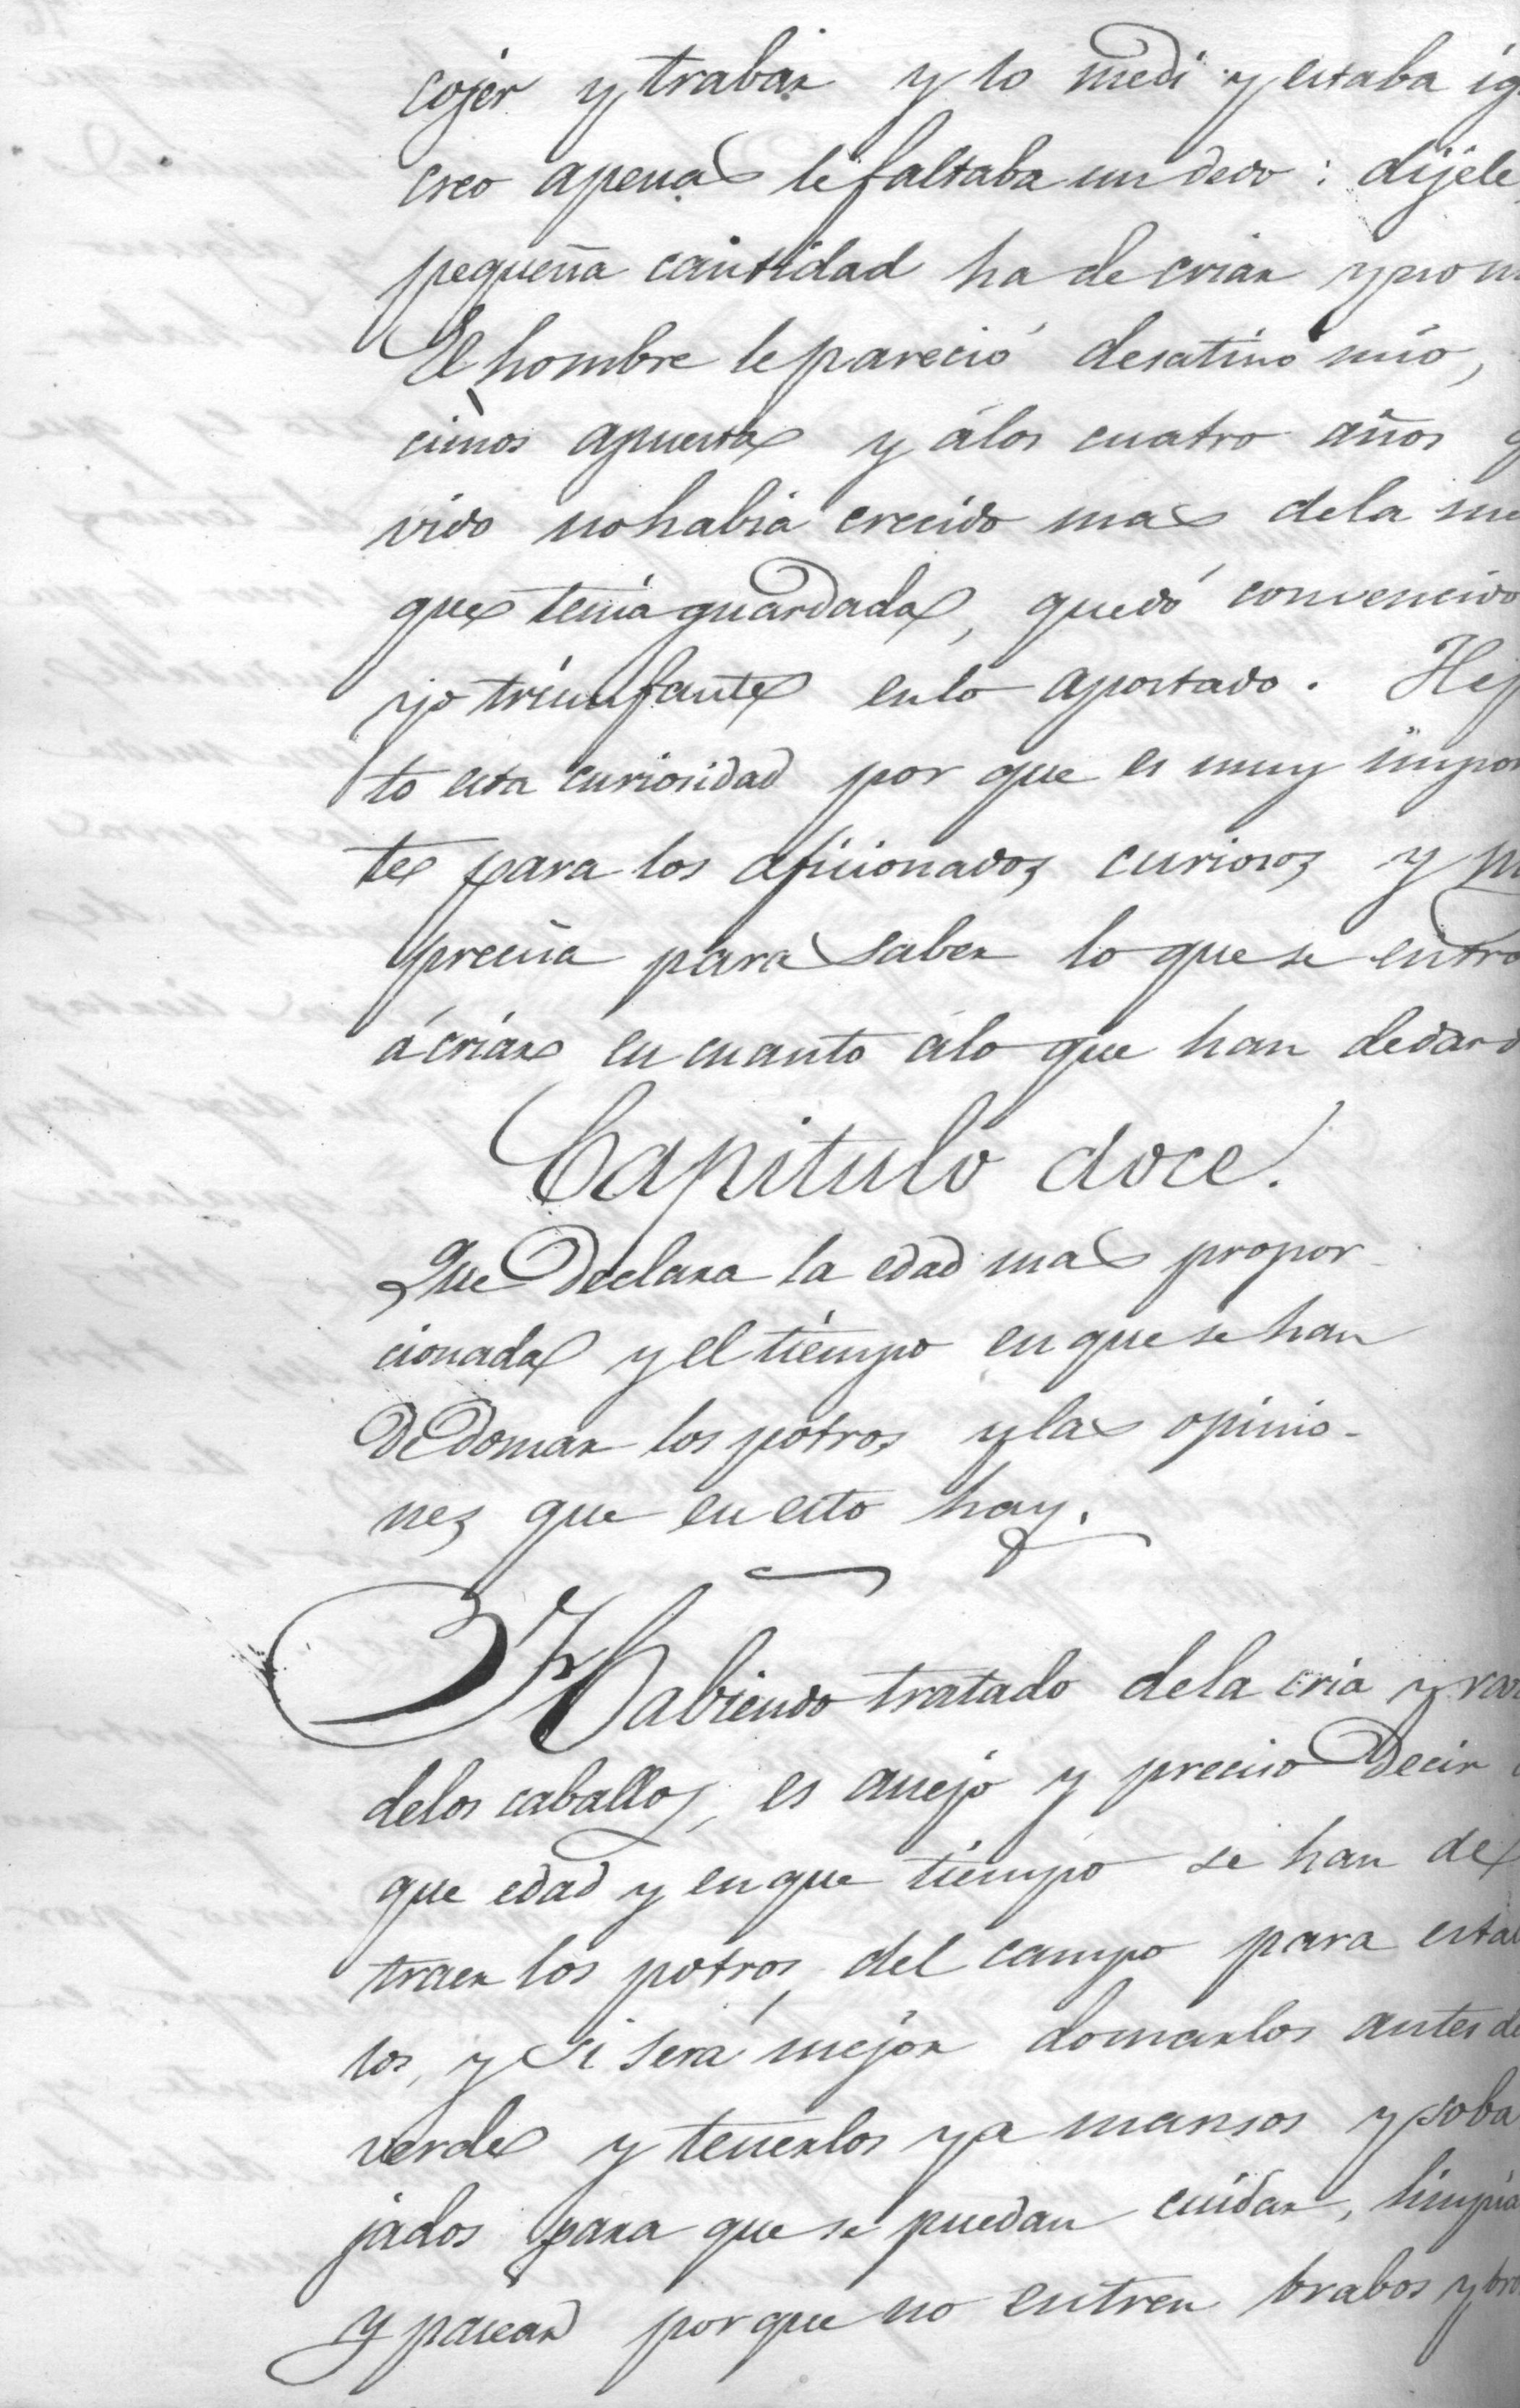 cojer y trabar y lo medi y estaba ig
creo apenas le faltaba un dedo: dijele
pequeña cantidad ha de criar y
El hombre le pareció desatino mio,
cimos apuesta y á los cuatro años
vido no habia crecido mas de la me
que tenia guardada, quedó convencido
yo triunfante en lo apostado. He p
to esta curiosidad por que es muy impor
te para los aficionados curiosos y
precisa para saber lo que se entro
á criar en cuanto á lo que han de dar d
Capitulo doce.
Que Declara la edad mas propor
cionada y el tiempo en que se han
De domar los potros y las opinio-
nes que en esto hay.
Habiendo tratado de la cria y raz
de los caballos, es anejo y preciso Decir
que edad y en que tiempo se han de
traer los potros, del campo para estab
los, y si será mejor domarlos antes de
verde y tenerlos ya mansos y soba
jados para que se puedan cuidar, limpia
y pasear por que no entren brabos y bro